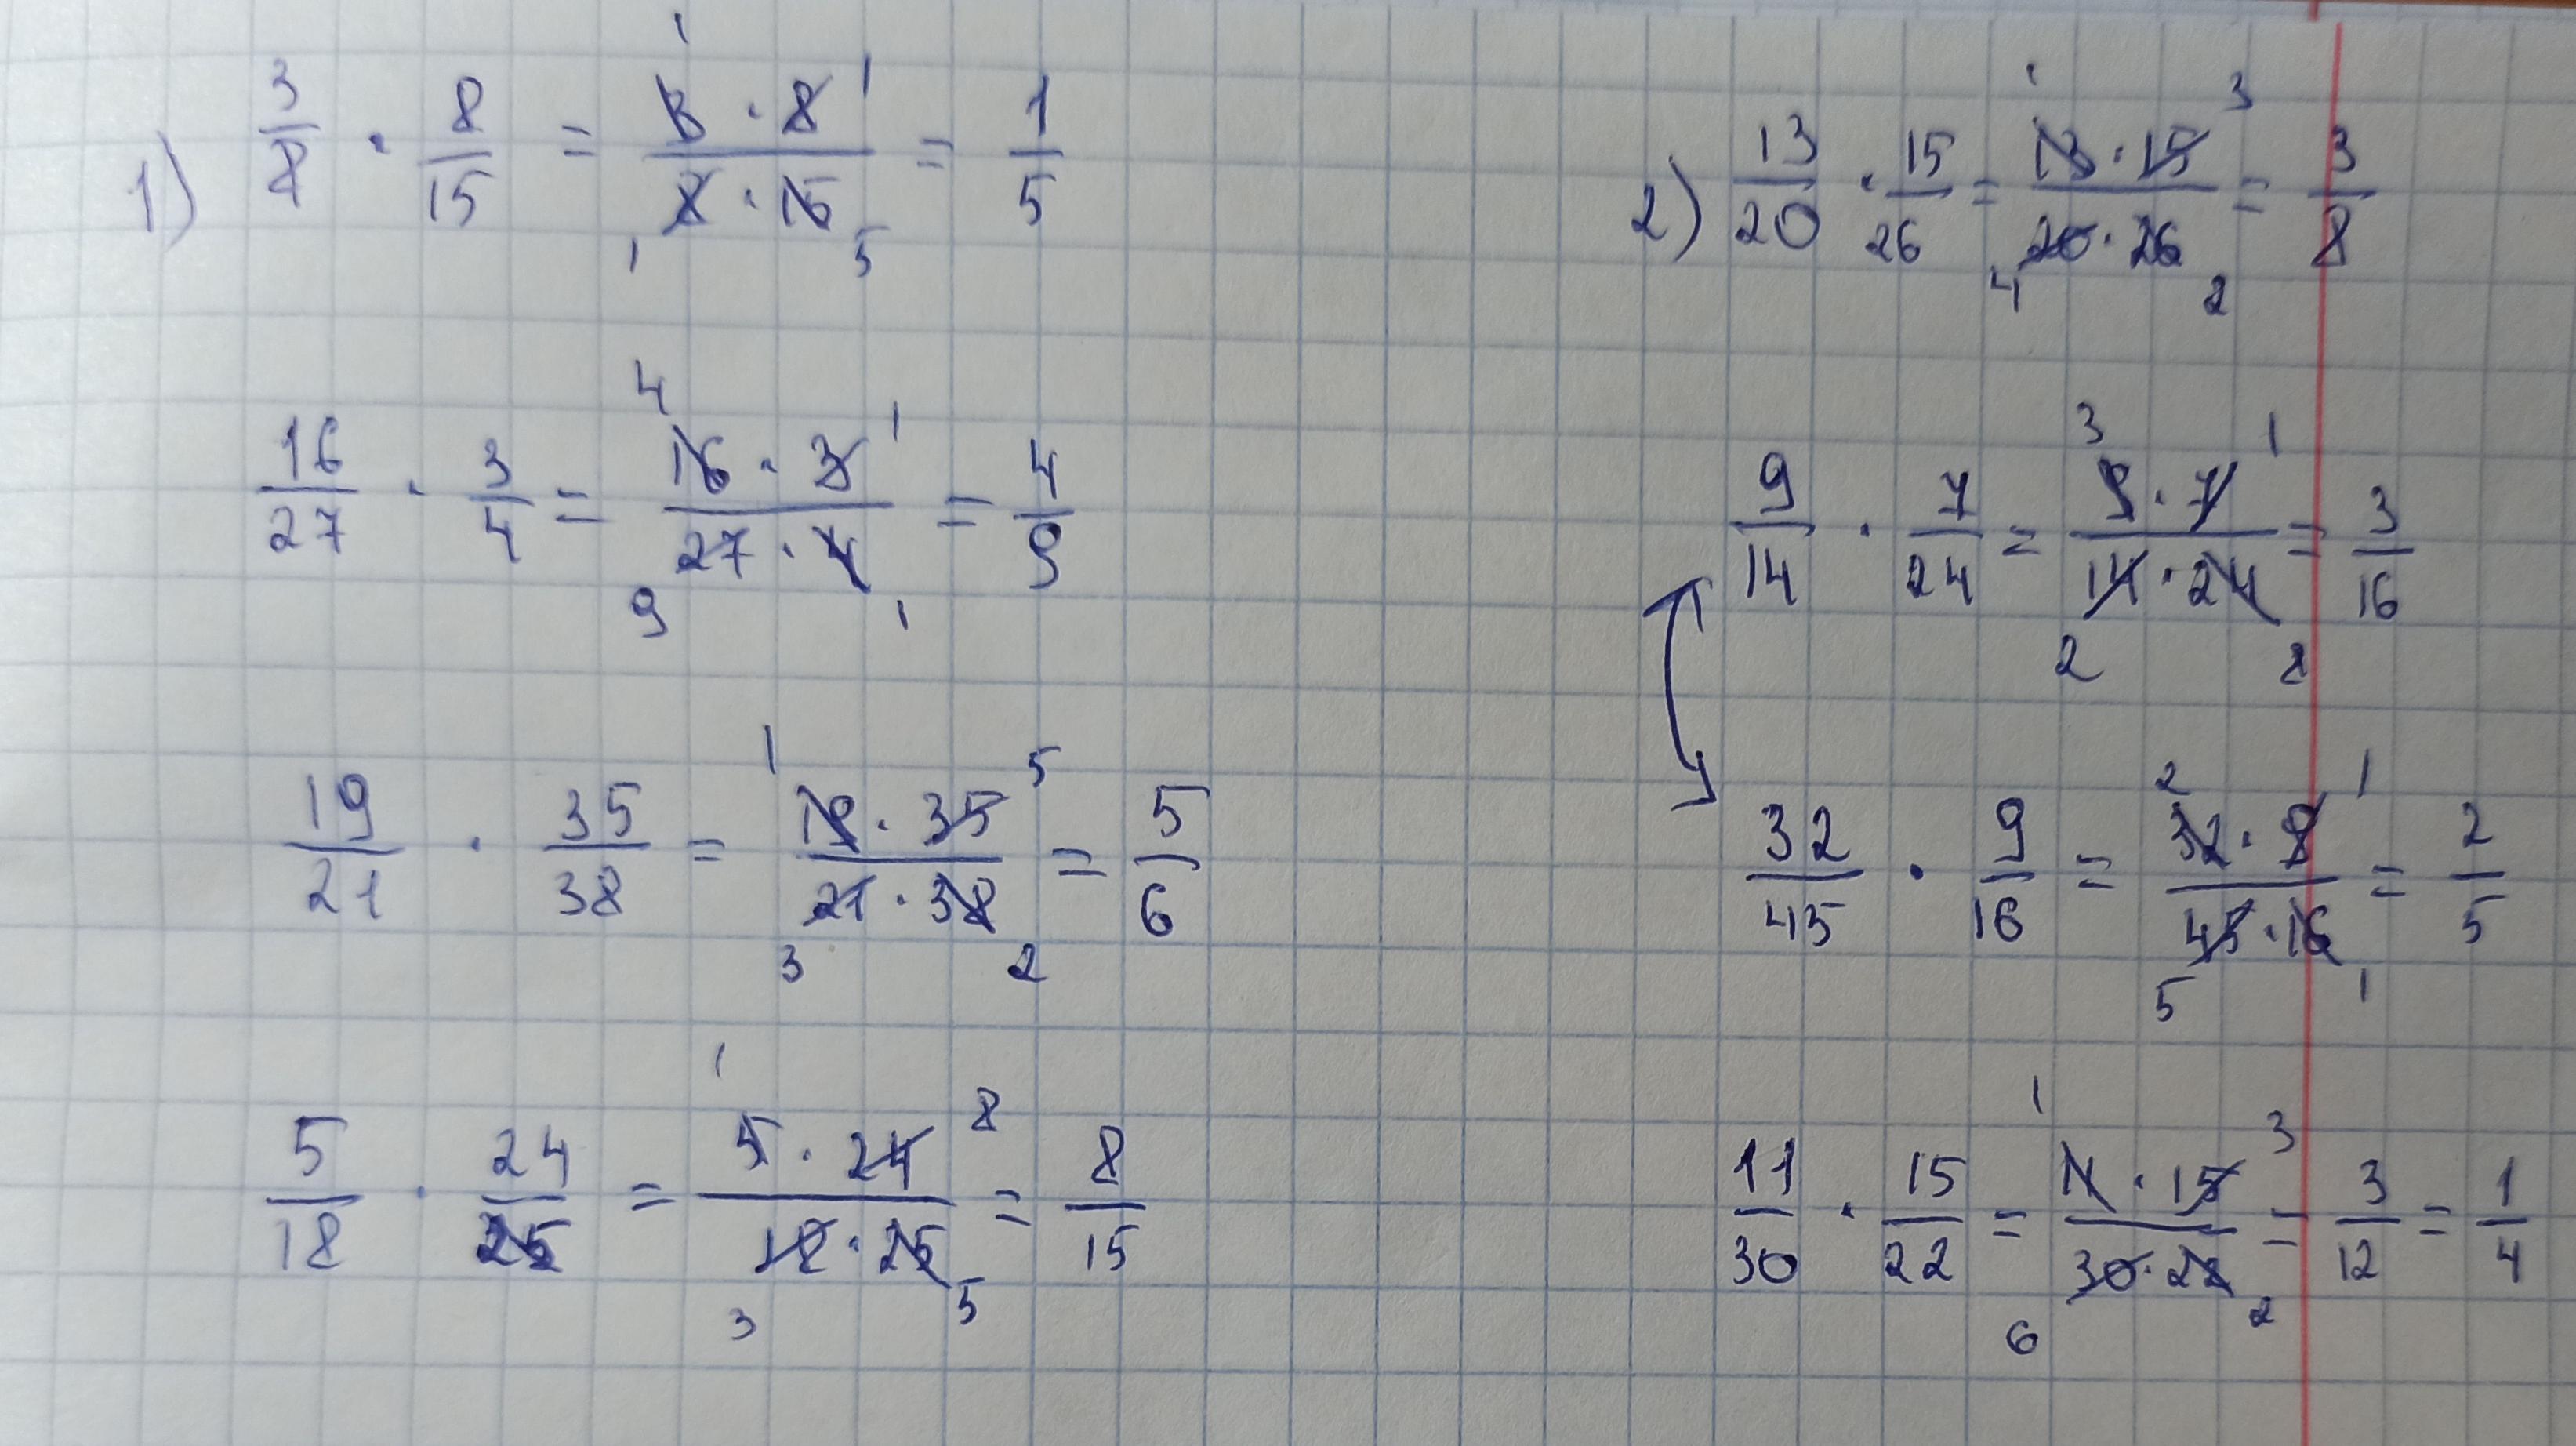 1) 3/8 · 8/15 = (3 · 8)/(8 · 15) = 1/5
1 1
1 5
16/27 · 3/4 = (16 · 3)/(27 · 4) = 4/9
4 1
9 1
19/21 · 35/38 = (19 · 35)/(21 · 38) = 5/6
1 5
3 2
5/18 · 24/25 = (5 · 24)/(18 · 25) = 8/15
1 8
3 5
2) 13/20 · 15/26 = (13 · 15)/(20 · 26) = 3/8
1 3
4 2
9/14 · 7/24 = (9 · 7)/(14 · 24) = 3/16
3 1
2 8
32/45 · 9/16 = (32 · 9)/(45 · 16) = 2/5
2 1
5 1
11/30 · 15/22 = (11 · 15)/(30 · 22) = 3/12 = 1/4
1 3
6 2